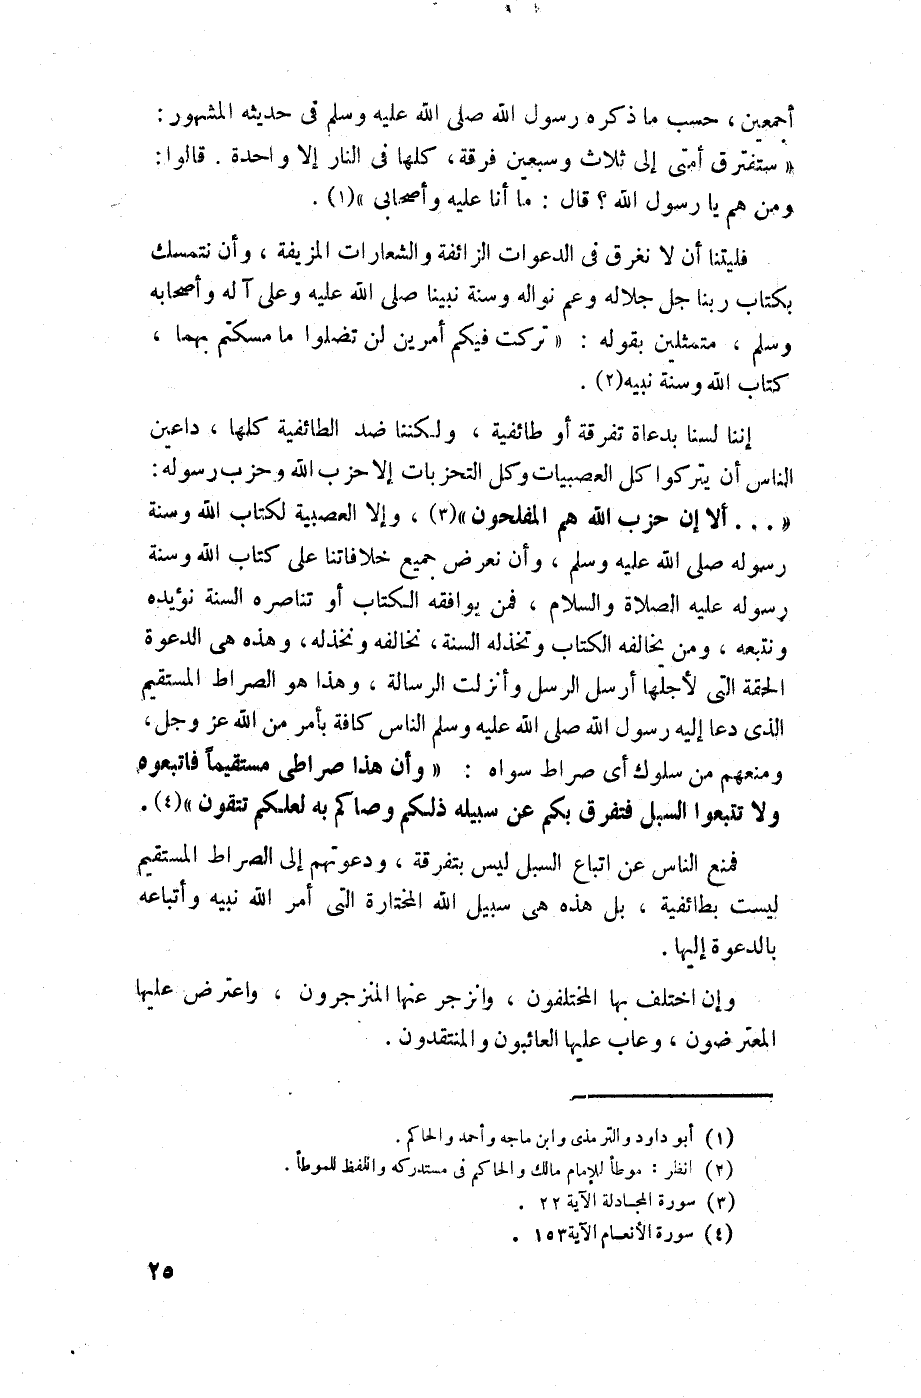 أجمعين ، حسب ما ذكره رسول الله صلى الله عليه وسلم فى حديثه المشهور :
« ستفترق أمتى إلى ثلاث وسبعين فرقة ، كلها فى النار إلا واحدة . قالوا :
ومن هم يا رسول الله ؟ قال : ما أنا عليه وأصحابى »(١) .
فليتنا أن لا نغرق فى الدعوات الزائفة والشعارات المزيفة ، وأن نتمسك
بكتاب ربنا جل جلاله وعم نواله وسنة نبينا صلى الله عليه وعلى آله وأصحابه
وسلم ، متمثلين بقوله : « تركت فيكم أمرين لن تضلوا ما مسكتم بهما ،
كتاب الله وسنة نبيه(٢) .
إننا لسنا بدعاة تفرقة أو طائفية ، ولكننا ضد الطائفية كلها ، داعين
الناس أن يتركوا كل العصبيات وكل التحزبات إلا حزب الله وحزب رسوله :
« . . . ألا إن حزب الله هم المفلحون »(٣) ، وإلا العصبية لكتاب الله وسنة
رسوله صلى الله عليه وسلم ، وأن نعرض جميع خلافاتنا على كتاب الله وسنة
رسوله عليه الصلاة والسلام ، فمن يوافقه الكتاب أو تناصره السنة نؤيده
ونتبعه ، ومن يخالفه الكتاب وتخذله السنة ، نخالفه ونخذله ، وهذه هى الدعوة
الحقة التى لأجلها أرسل الرسل وأنزلت الرسالة ، وهذا هو الصراط المستقيم
الذى دعا إليه رسول الله صلى الله عليه وسلم الناس كافة بأمر من الله عز وجل ،
ومنعهم من سلوك أى صراط سواه : « وأن هذا صراطى مستقيماً فاتبعوه
ولا تتبعوا السبل فتفرق بكم عن سبيله ذلكم وصاكم به لعلكم تتقون »(٤) .
فمنع الناس عن اتباع السبل ليس بتفرقة ، ودعوتهم إلى الصراط المستقيم
ليست بطائفية ، بل هذه هى سبيل الله المختارة التى أمر الله نبيه وأتباعه
بالدعوة إليها .
وإن اختلف بها المختلفون ، وانزجر عنها المنزجرون ، واعترض عليها
المعترضون ، وعاب عليها العائبون والمنتقدون .
(١) أبو داود والترمذى وابن ماجه وأحمد والحاكم .
(٢) انظر : موطأ للإمام مالك والحاكم فى مستدركه واللفظ للموطأ .
(٣) سورة المجادلة الآية ٢٢ .
(٤) سورة الأنعام الآية ١٥٣ .
٢٥